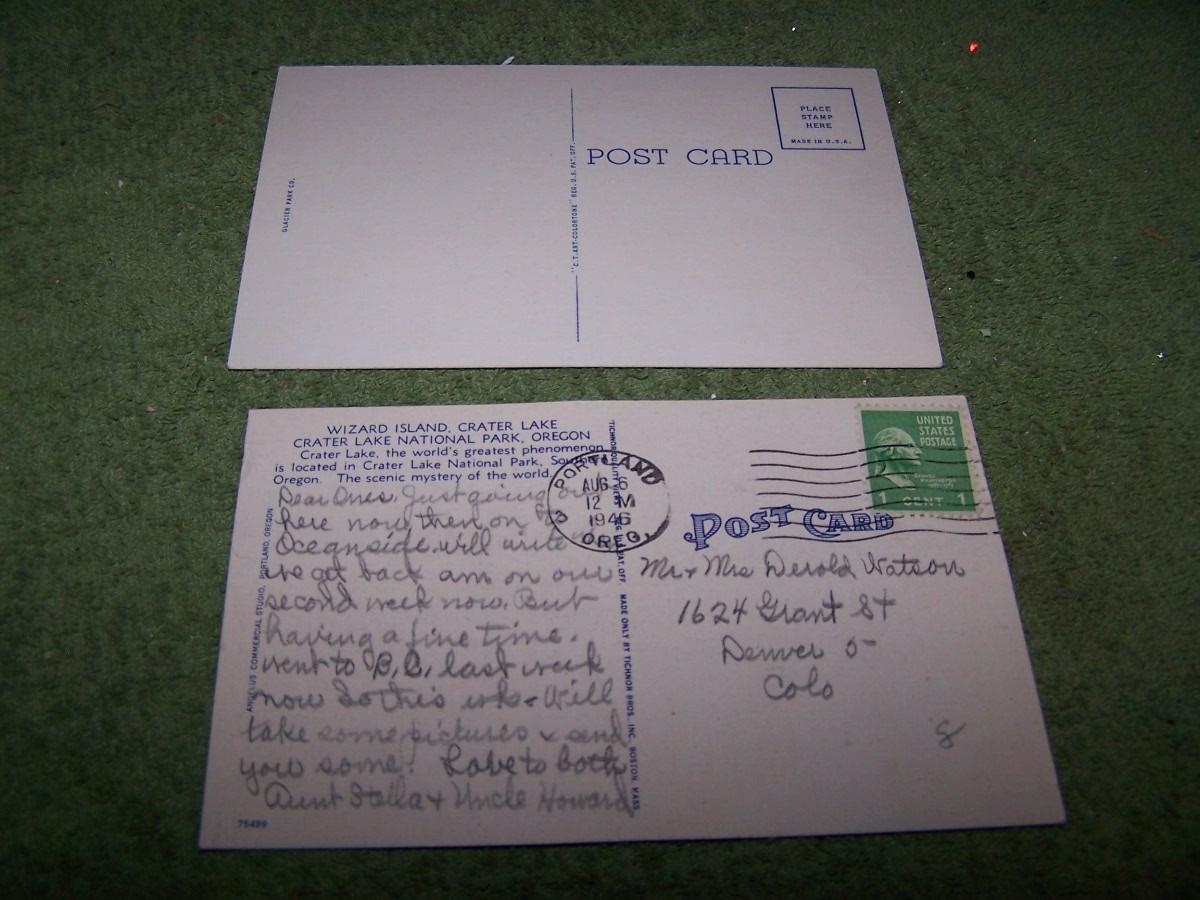 PLACE
STAMP
HERE
MADE IN U.S.A.
POST CARD
GLACIER PARK CO.
"C.T.ART-COLORTONE" REG. U.S. PAT. OFF.
WIZARD ISLAND, CRATER LAKE
CRATER LAKE NATIONAL PARK, OREGON
Crater Lake, the world's greatest phenomenon
is located in Crater Lake National Park,
Oregon. The scenic mystery of the world.
Dear Ones, Just going
here now, then on
Oceanside. will write
we get back am on our
second week now. But
having a fine time.
went to B.C. last week
now So this wk - Will
take some pictures & send
you some. Love to both
Aunt Stella + Uncle Howard
75499
ANGELUS COMMERCIAL STUDIO, PORTLAND, OREGON
PAT. OFF. MADE ONLY BY TICHNOR BROS. INC. BOSTON, MASS
PORTLAND
AUG 6
12 M
1946
3 OREG.
UNITED
STATES
POSTAGE
1 CENT 1
POST CARD
Mr + Mrs Derold Watson
1624 Grant St
Denver 5
Colo
8